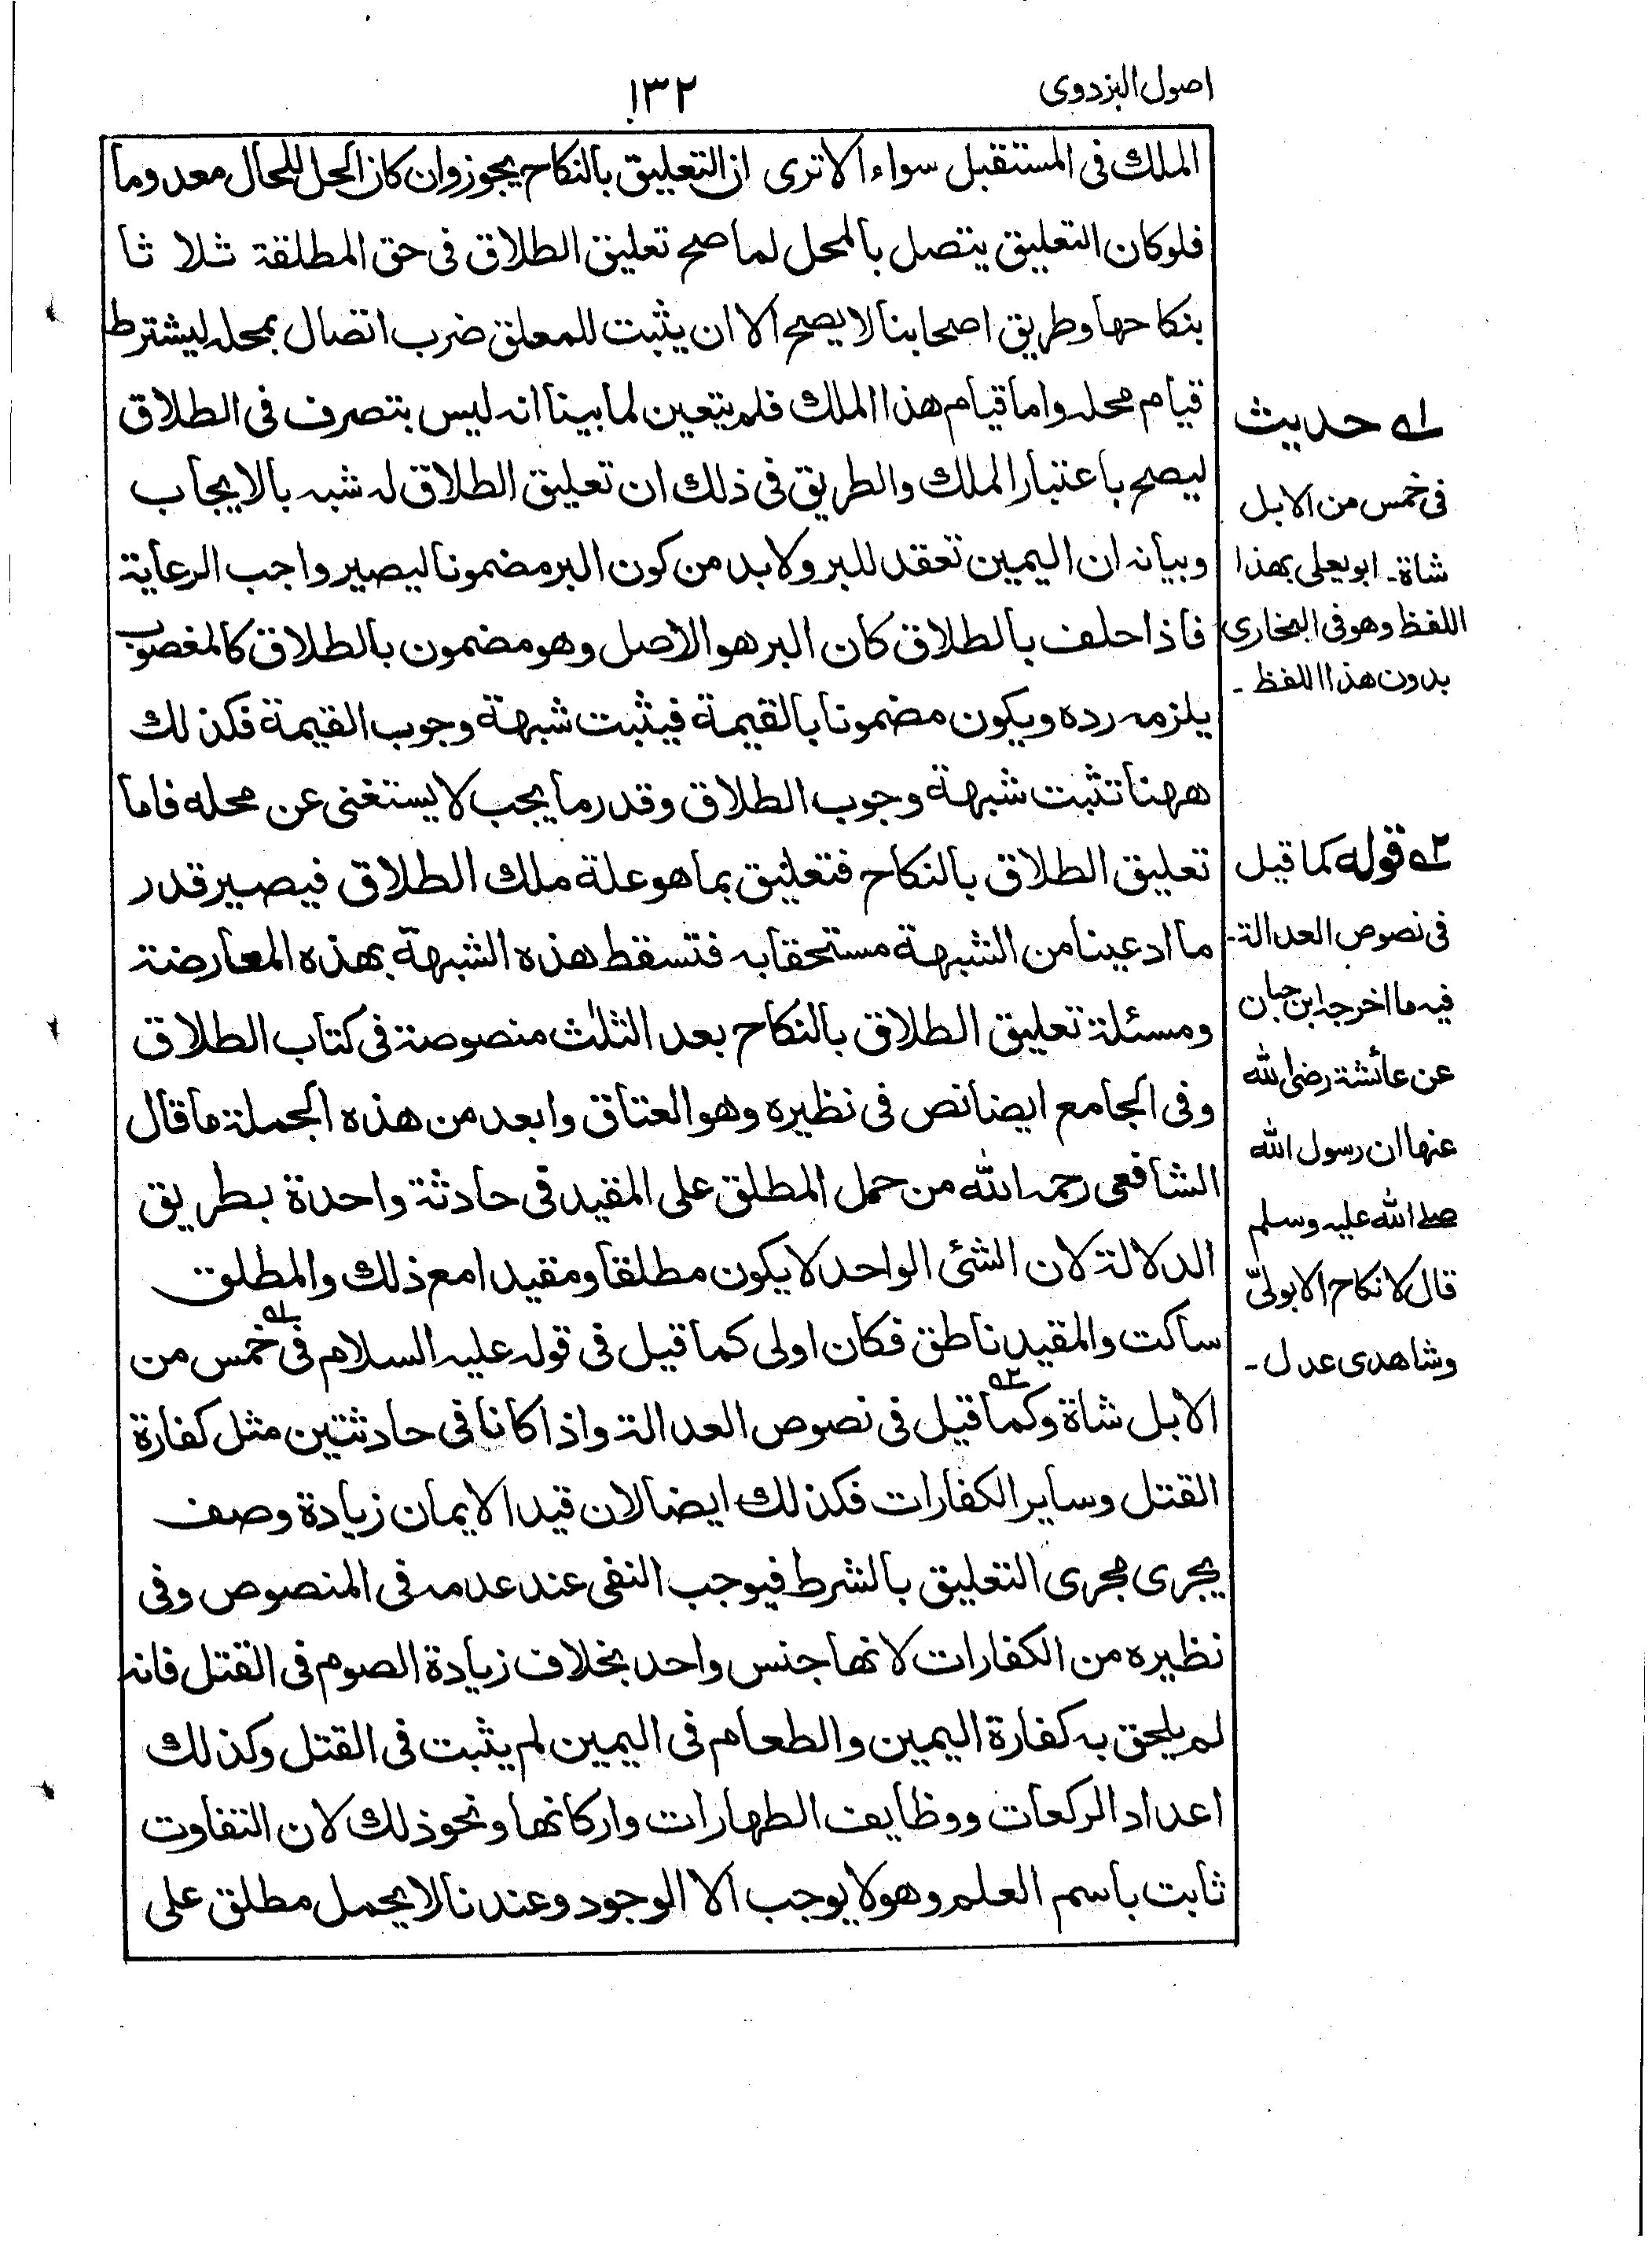 اصول البزدوى
١٣٢
الملك فى المستقبل سواء الا ترى ان التعليق بالنكاح يجوز وان كان الحل للحال معدوما
فلو كان التعليق يتصل بالمحل لما صح تعليق الطلاق فى حق المطلقة ثلا ثا
بنكاحها وطريق اصحابنا لا يصح الا ان يثبت للمعلق ضرب اتصال بمحله ليشترط
قيام محله واما قيام هذا الملك فلم يتعين لما بينا انه ليس بتصرف فى الطلاق
ليصح باعتبار الملك والطريق فى ذلك ان تعليق الطلاق له شبه بالايجاب
وبيانه ان اليمين تعقد للبر ولا بد من كون البر مضمونا ليصير واجب الرعاية
فاذا حلف بالطلاق كان البر هو الاصل وهو مضمون بالطلاق كالمغصوب
يلزمه رده ويكون مضمونا بالقيمة فيثبت شبهة وجوب القيمة فكذلك
ههنا تثبت شبهة وجوب الطلاق وقدر ما يجب لا يستغنى عن محله فاما
تعليق الطلاق بالنكاح فتعليق بما هو علة ملك الطلاق فيصير قدر
ما ادعينا من الشبهة مستحقا به فتسقط هذه الشبهة بهذه المعارضة
ومسئلة تعليق الطلاق بالنكاح بعد الثلث منصوصة فى كتاب الطلاق
وفى الجامع ايضا نص فى نظيره وهو العتاق وابعد من هذه الجملة ما قال
الشافعى رحمه الله من حمل المطلق على المقيد فى حادثة واحدة بطريق
الدلالة لان الشئ الواحد لا يكون مطلقا ومقيدا مع ذلك والمطلق
ساكت والمقيد ناطق فكان اولى كما قيل فى قوله عليه السلام فى ١ خمس من
الابل شاة وكما ٢ قيل فى نصوص العدالة واذا كانا فى حادثتين مثل كفارة
القتل وساير الكفارات فكذلك ايضا لان قيد الايمان زيادة وصف
يجرى مجرى التعليق بالشرط فيوجب النفى عند عدمه فى المنصوص وفى
نظيره من الكفارات لانها جنس واحد بخلاف زيادة الصوم فى القتل فانه
لم يلحق به كفارة اليمين والطعام فى اليمين لم يثبت فى القتل وكذلك
اعداد الركعات ووظايف الطهارات واركانها ونحو ذلك لان التفاوت
ثابت باسم العلم وهو لا يوجب الا الوجود وعندنا لا يحمل مطلق على
١ حديث
فى خمس من الابل
شاة۔ ابو يعلى بهذا
اللفظ وهو فى البخارى
بدون هذا اللفظ ۔
٢ قوله كما قيل
فى نصوص العدالة۔
فيه ما اخرجه ابن حبان
عن عائشة رضى الله
عنها ان رسول الله
صلے الله عليه وسلم
قال لا نكاح الا بولىّ
وشاهدى عدل ۔